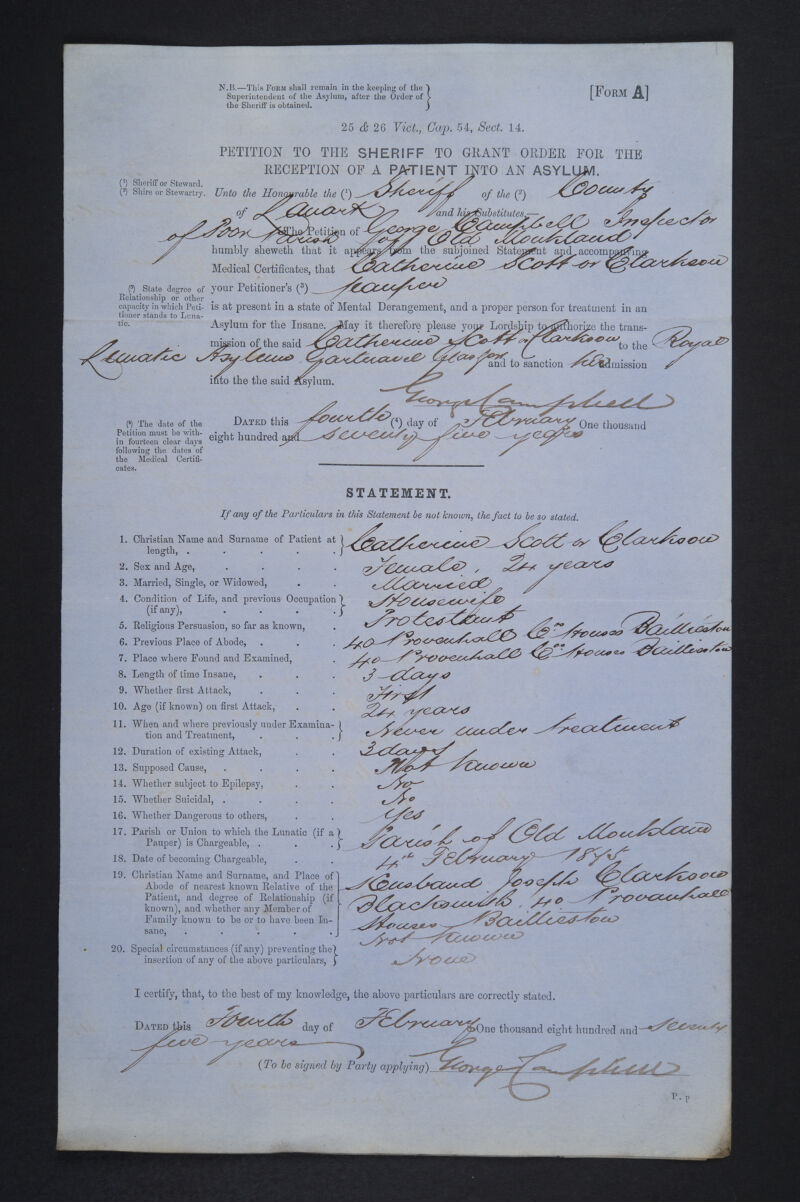 N.B.—This Form shall remain in the keeping of the
Superintendent of the Asylum, after the Order of
the Sheriff is obtained.
[Form A]
25 & 26 Vict., Cap. 54, Sect. 14.
PETITION TO THE SHERIFF TO GRANT ORDER FOR THE
RECEPTION OF A PATIENT INTO AN ASYLUM.
(1) Sheriff or Steward.
(2) Shire or Stewartry.
Unto the Honourable the (1) Sheriff of the (2) County
of Lanark and his Substitutes,—
The Petition of George Campbell Inspector
of Poor Parish of Old Monkland
humbly sheweth that it appears from the subjoined Statement and accompanying
Medical Certificates, that Catherine Scott or Clarkson
(3) State degree of
Relationship or other
capacity in which Peti-
tioner stands to Luna-
tic.
your Petitioner's (3) pauper
is at present in a state of Mental Derangement, and a proper person for treatment in an
Asylum for the Insane. May it therefore please your Lordship to authorize the trans-
mission of the said Catherine Scott or Clarkson to the Royal
Lunatic Asylum Gartnavel Glasgow and to sanction her admission
into the the said Asylum.
George Campbell
(4) The date of the
Petition must be with-
in fourteen clear days
following the dates of
the Medical Certifi-
cates.
Dated this fourth (4) day of February One thousand
eight hundred and seventy five years
STATEMENT.
If any of the Particulars in this Statement be not known, the fact to be so stated.
1. Christian Name and Surname of Patient at
length, . . . . . Catherine Scott or Clarkson
2. Sex and Age, . . . . Female, 24 years
3. Married, Single, or Widowed, . . Married
4. Condition of Life, and previous Occupation
(if any), . . . . Housewife
5. Religious Persuasion, so far as known, . Protestant
6. Previous Place of Abode, . . . 40 Provenhall Co. Houses Baillieston
7. Place where Found and Examined, . 40 Provenhall Co. Houses Baillieston
8. Length of time Insane, . . . 3 days
9. Whether first Attack, . . . First
10. Age (if known) on first Attack, . . 24 years
11. When and where previously under Examina-
tion and Treatment, . . . Never under treatment
12. Duration of existing Attack, . . 3 days
13. Supposed Cause, . . . . Not known
14. Whether subject to Epilepsy, . . No
15. Whether Suicidal, . . . . No
16. Whether Dangerous to others, . . Yes
17. Parish or Union to which the Lunatic (if a
Pauper) is Chargeable, . . . Parish of Old Monkland
18. Date of becoming Chargeable, . . 4th February 1875
19. Christian Name and Surname, and Place of
Abode of nearest known Relative of the
Patient, and degree of Relationship (if
known), and whether any Member of
Family known to be or to have been In-
sane, . . . . . .
Husband Joseph Clarkson
Blacksmith, 40 Provanhall
Houses Baillieston
Not known
20. Special circumstances (if any) preventing the
insertion of any of the above particulars, None
I certify, that, to the best of my knowledge, the above particulars are correctly stated.
Dated this Fourth day of February One thousand eight hundred and seventy
five years
(To be signed by Party applying) George Campbell
P. p